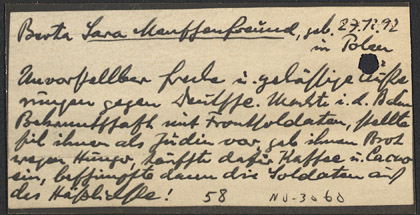 Berta Sara Menschenfreund, geb. 27.12.92
in Polen
Unvorstellbar freche u. gehässige Äuße
rungen gegen Deutsche. Machte i. d. Bahn
Bekanntschaft mit Frontsoldaten, stellte
sich ihnen als Jüdin vor, gab ihnen Brot
wegen Hunger, dafür Kaffee u. Cacao
ein, beschimpfte dann die Soldaten auf
das Häßlichste! 58 NJ-3060